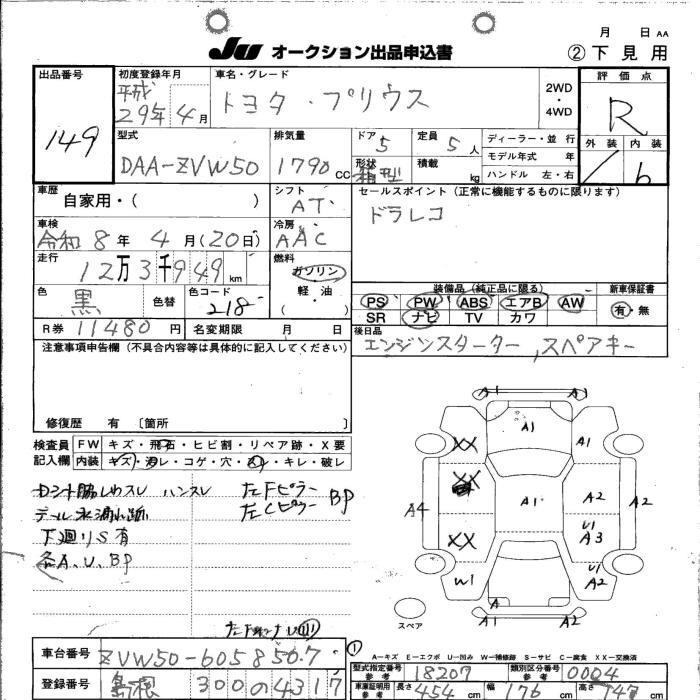 月 日 AA
JU オークション出品申込書 ②下見用
出品番号 149
初度登録年月 平成 29年 4月
車名・グレード トヨタ・プリウス
2WD ・ 4WD
評価点 R
外装 内装
型式 DAA-ZVW50
排気量 1790 CC
ドア 5
定員 5人
形状 箱型
積載 kg
ディーラー・並行
モデル年式 年
ハンドル 左・右
車歴 自家用・( )
シフト AT
セールスポイント(正常に機能するものに限ります)
ドラレコ
車検 令和 8年 4月(20日)
冷房 AAC
走行 12万3千949km
燃料 ガソリン 軽・油 ( )
色 黒 色替 色コード 218
装備品(純正品に限る)
PS PW ABS エアB AW
SR ナビ TV カワ
新車保証書
有・無
R券 11480円 名変期限 月 日
後日品
エンジンスターター,スペアキー
注意事項申告欄(不具合内容等は具体的に記入してください)
修復歴 有 [箇所 ]
検査員記入欄
FW キズ・飛石・ヒビ割・リペア跡・X要
内装 キズ・汚レ・コゲ・穴・スレ・キレ・破レ
ハンスレ 左Fピラー
左Cピラー BP
下廻りS有
各A.U.BP
A1 A1
A1 A1
XX
XX
A4 A1 A2 A2
XX U1 A3
W1 U1 A2
A
A2 A2
スペア
A-キズ E-エクボ U-凹み W-補修跡 S-サビ C-腐食 XX-交換済
車台番号 ZVW50-6058507
登録番号 島根 300 の 4317
① 型式指定番号 参考 18207
類別区分番号 参考 0004
車庫証明用 参考 長さ 454 cm 幅 176 cm 高さ 147 cm